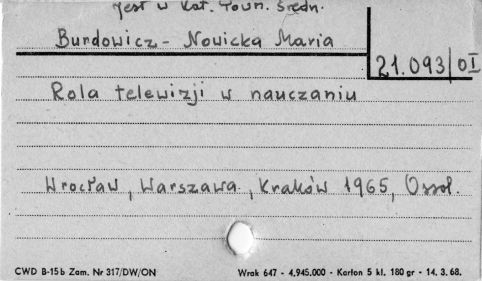 Jest w Kat. Town. Średn.
Burdowicz-Nowicka Maria
21.093/OI
Rola telewizji w nauczaniu
Wrocław, Warszawa, Kraków 1965, Ossol.
CWD B-15b Zam. Nr 317/DW/ON Wrak 647 - 4.945.000 - Karton 5 kl. 180 gr - 14. 3. 68.